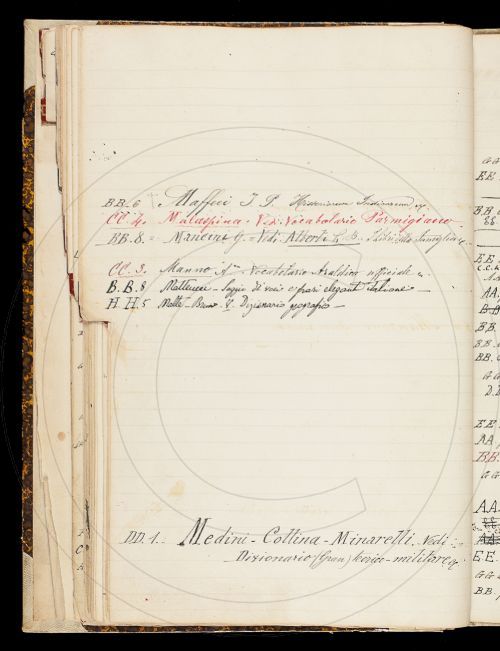 BB. 6 Maffei I. P. Historiarum Indicarum
CC. 4. Malaspina - Ved: Vocabolario Parmigiano
BB. 8. = Mancini G. = Vedi Alberti L. B. della famiglia
CC. 3. Manno A. - Vocabolario Araldico ufficiale
B. B. 8 Matteucci - Saggio di voci e frasi eleganti italiane -
H. H. 5 Malte - Brun - V. Dizionario geografico -
DD. 1. Medini - Collina - Minarelli. Vedi
Dizionario (Gran) teorico - militare
EE.
EE.
AA
BB.
BB.
BB.
D.D
EE.
AA
BB.
AA.
EE.
BB.